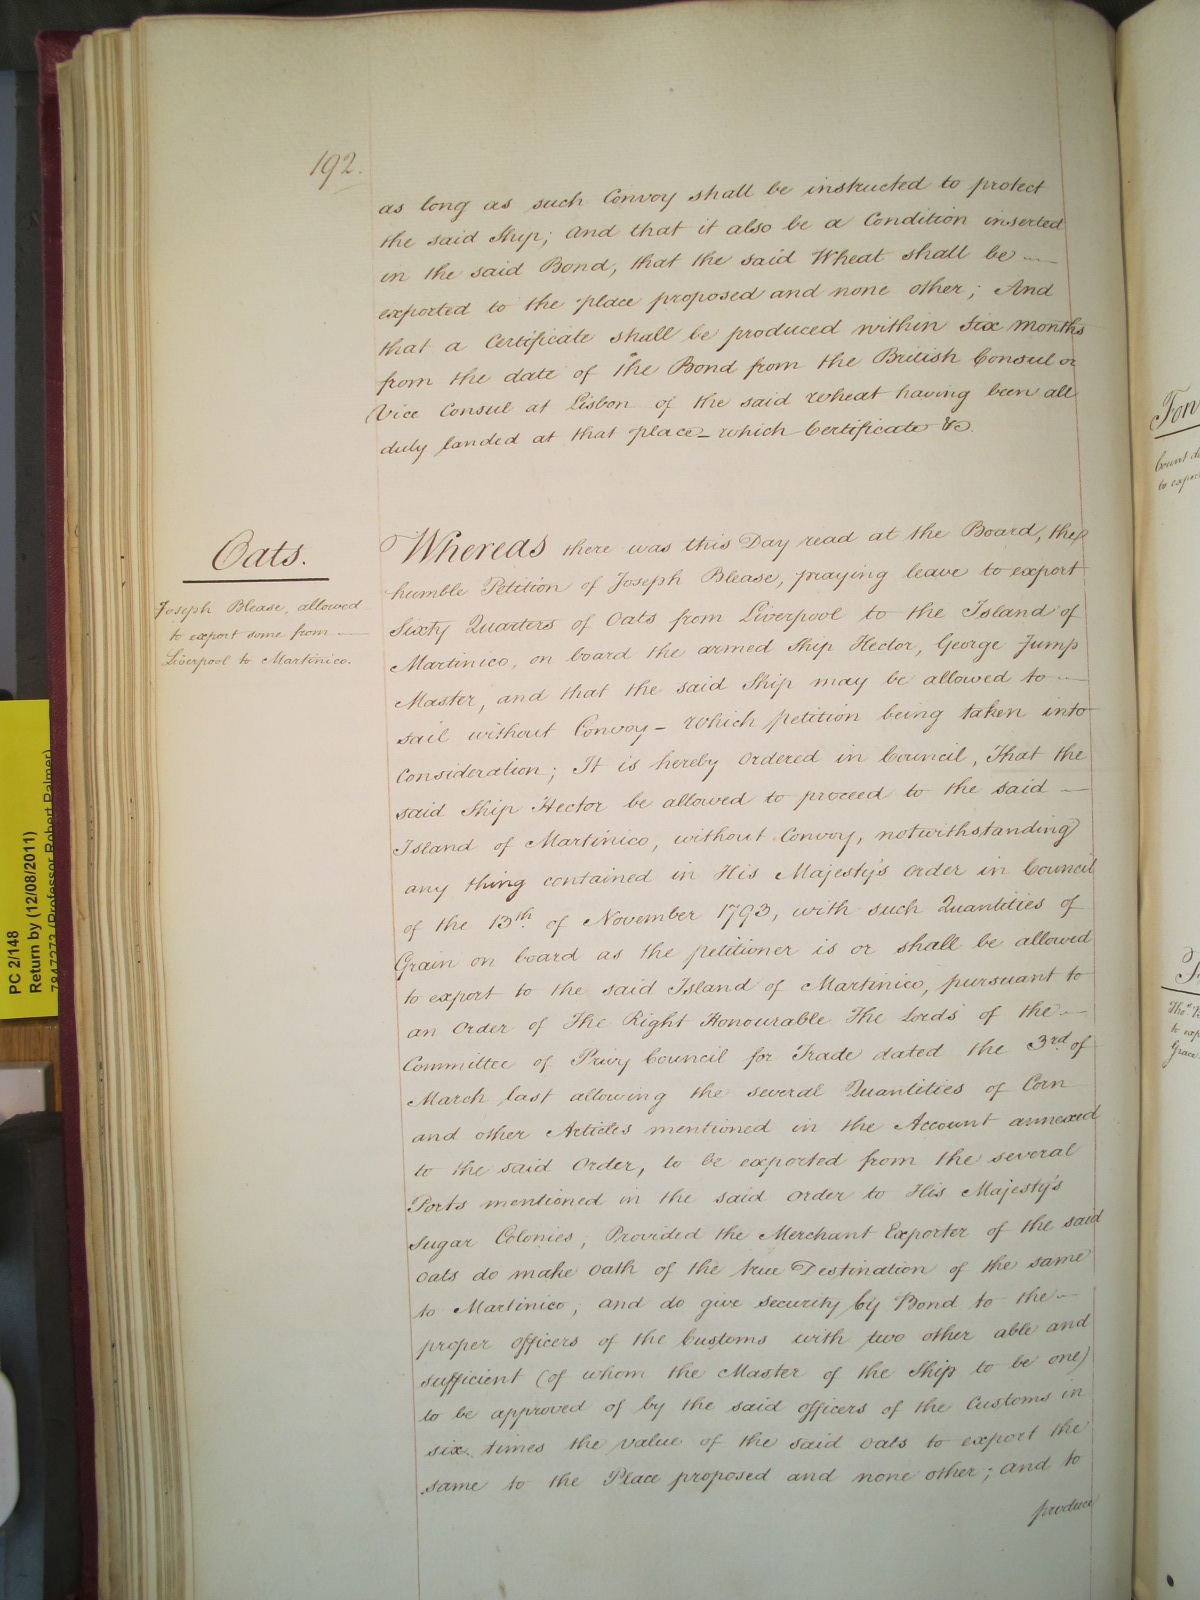 192.
as long as such Convoy shall be instructed to protect
the said Ship; and that it also be a Condition inserted
in the said Bond, that the said Wheat shall be —
exported to the place proposed and none other; And
that a Certificate shall be produced within Six Months
from the date of the Bond from the British Consul or
Vice Consul at Lisbon of the said Wheat having been all
duly landed at that place – which Certificate &c.
Oats.
Joseph Blease, allowed
to export some from —
Liverpool to Martinico.
Whereas there was this Day read at the Board, the
humble Petition of Joseph Blease, praying leave to export
Sixty Quarters of Oats from Liverpool to the Island of
Martinico, on board the armed Ship Hector, George Jump
Master, and that the said Ship may be allowed to —
sail without Convoy – Which petition being taken into
Consideration; It is hereby Ordered in Council, That the
said Ship Hector be allowed to proceed to the said —
Island of Martinico, without Convoy, notwithstanding
any thing contained in His Majesty's Order in Council
of the 13th. of November 1793, with such Quantities of
Grain on board as the petitioner is or shall be allowed
to export to the said Island of Martinico, pursuant to
an Order of The Right Honourable The Lords of the —
Committee of Privy Council for Trade dated the 3rd. of
March last allowing the several Quantities of Corn
and other Articles mentioned in the Account annexed
to the said Order, to be exported from the several
Ports mentioned in the said Order to His Majesty's
Sugar Colonies, Provided the Merchant Exporter of the said
Oats do make Oath of the true Destination of the same
to Martinico; and do give security by Bond to the —
proper officers of the Customs with two other able and
sufficient (of whom the Master of the Ship to be one)
to be approved of by the said officers of the Customs in
six times the value of the said Oats to export the
same to the Place proposed and none other; and to
produce
PC 2/148
Return by (12/08/2011)
7847273 (Professor Robert Palmer)